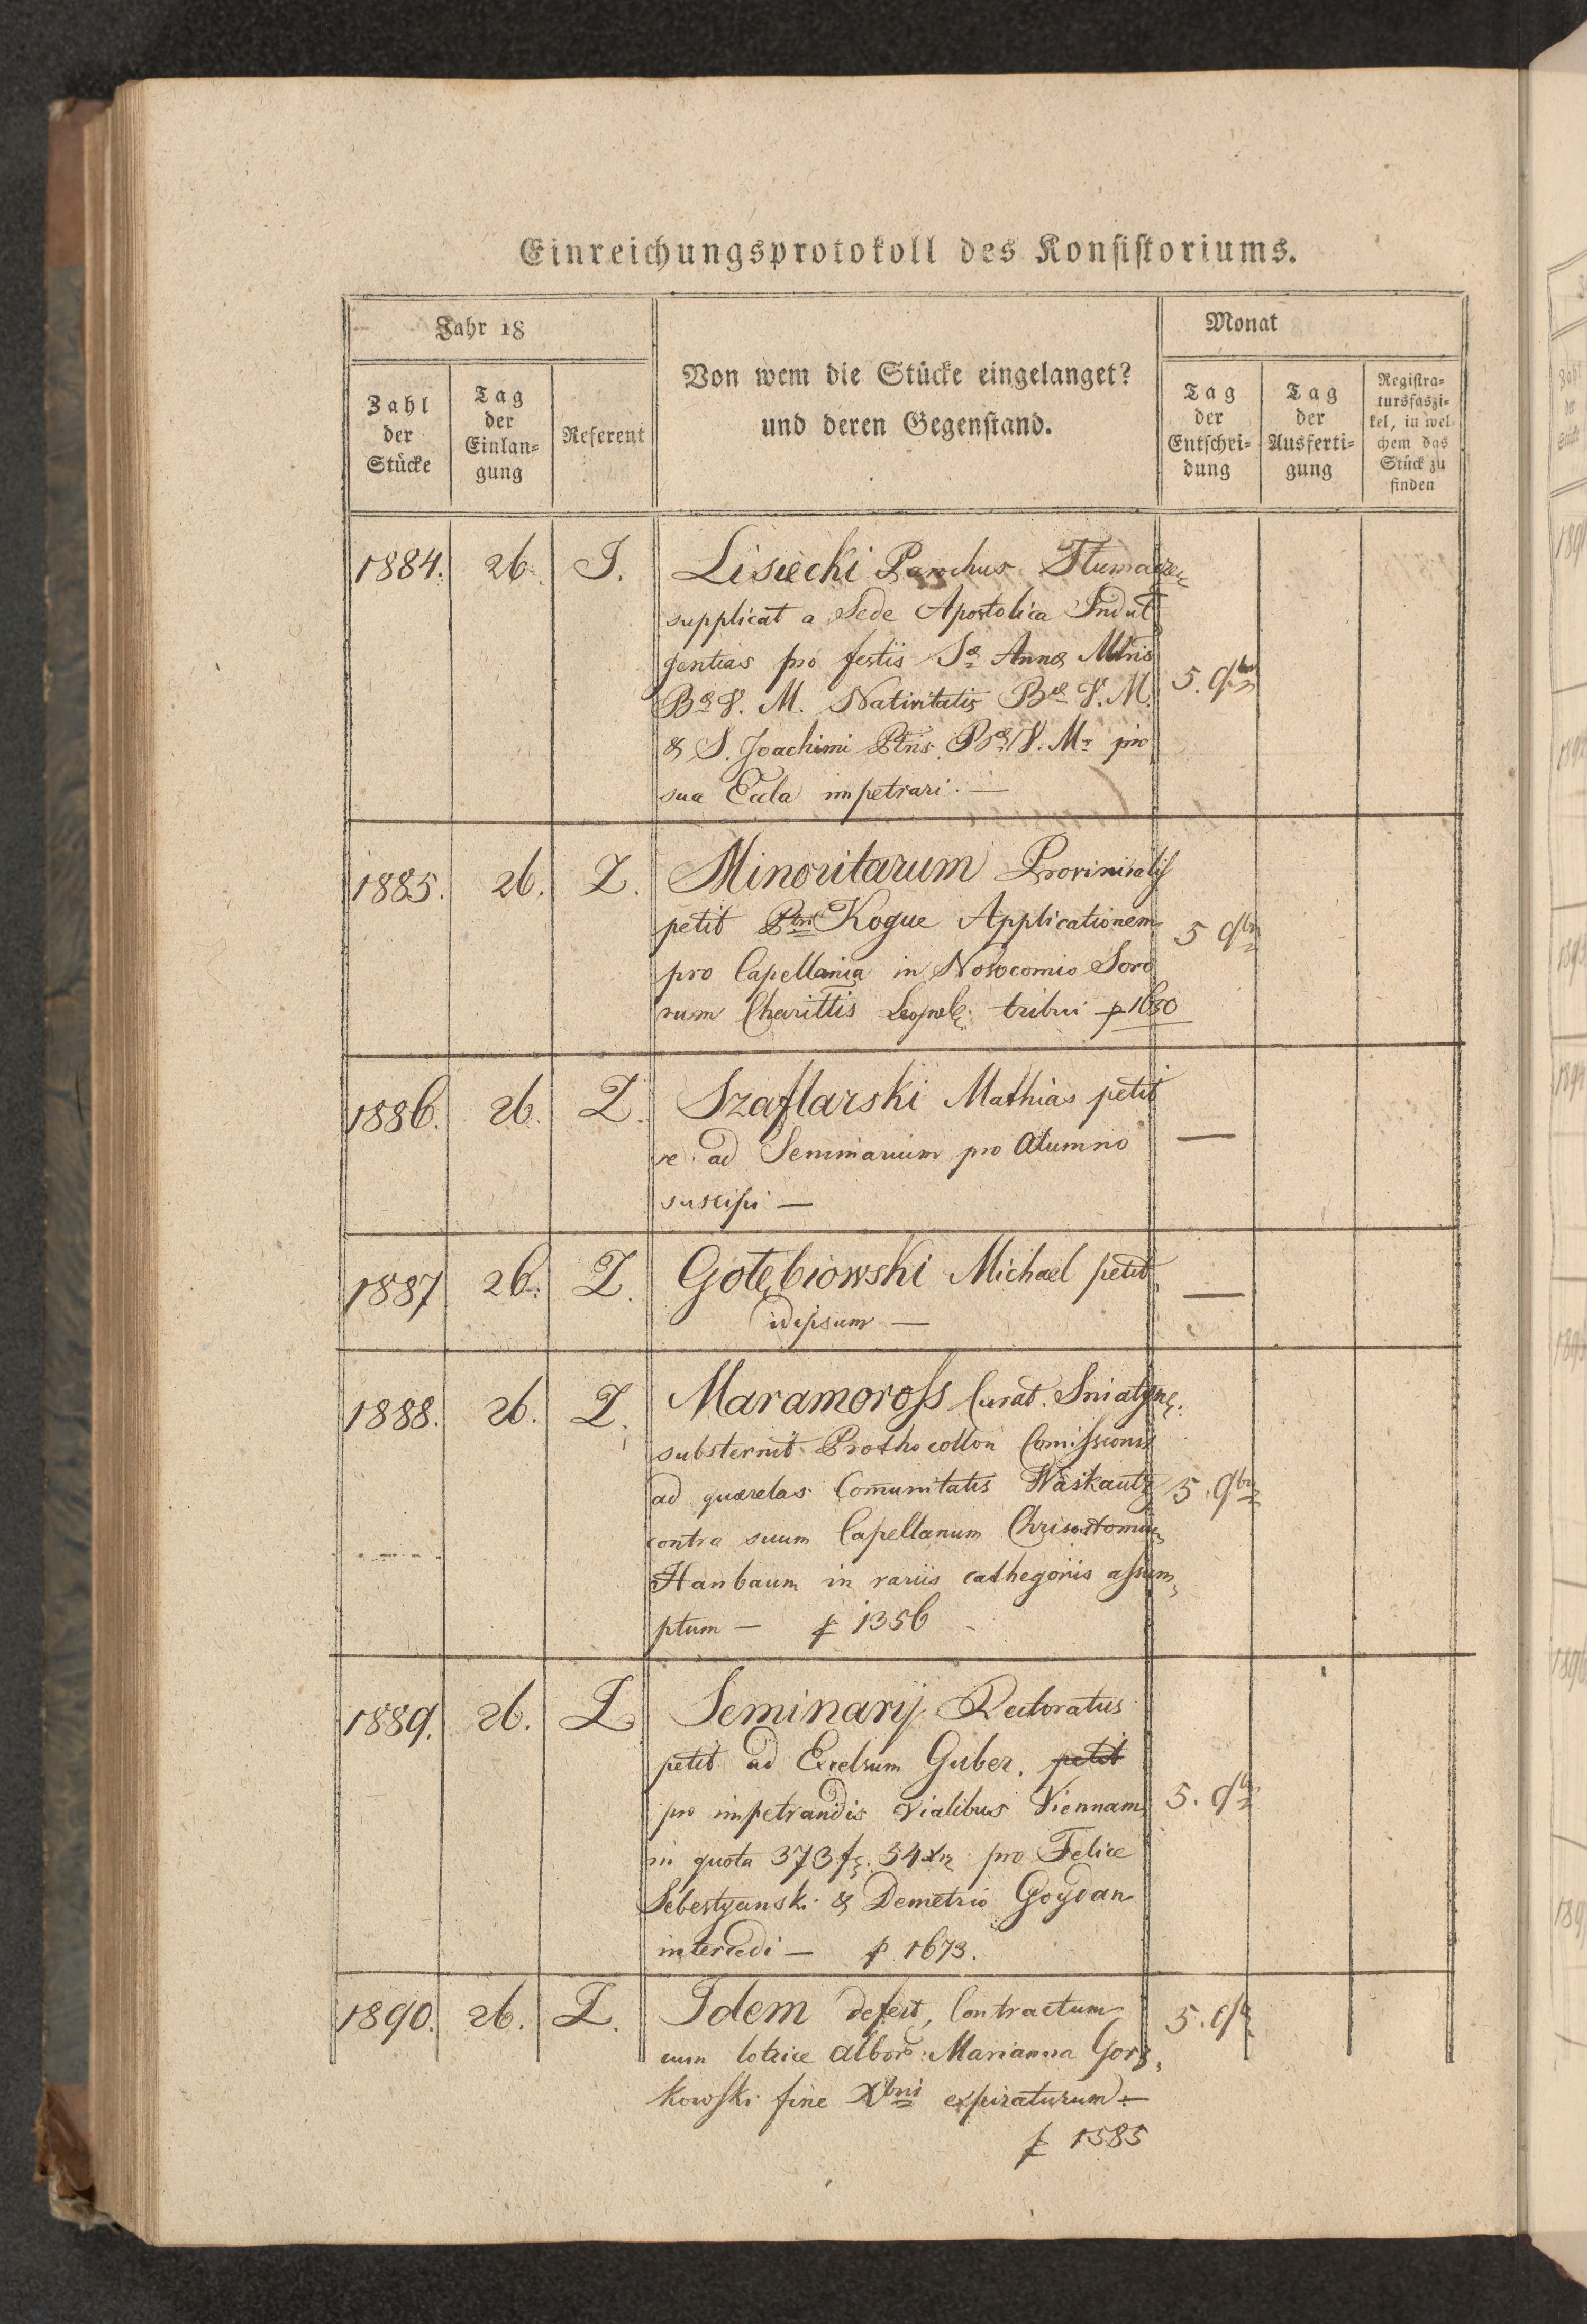 Einreichungsprotokoll des Konsistoriums.
Jahr 18
Monat
Zahl der Stücke
Tag der Einlan=gung
Referent
Von wem die Stücke eingelanget?
und deren Gegenstand.
Tag der Entschei=dung
Tag der Ausferti=gung
Registra=tursfaszi=kel, in wel=chem das Stück zu finden
1884. 26. J. Lisiecki Parochus
supplicat a Sede Apostolica Indul
gentias pro festis Sae Annae Mtris
Bae V. M. Nativitatis Bae V. M.
& S. Joachimi Ptris Bae V. M. pro
sua Eccla impetrari. —
5. 9br
1885. 26. Z. Minoritarum Provincialis
petit Ptri Kogue Applicationem
pro Capellania in Nosocomio Soro
rum Charittis Leopol. tribui p 1650
5 9br
1886. 26. Z. Szaflarski Mathias petit
se ad Seminarium pro Alumno
suscipi —
—
1887 26. Z. Gołębiowski Michael petit
idipsum —
—
1888. 26. Z. Maramoross Curat. Sniatyn.
substernit Prothocollon Comissionis
ad quaerelas Comunitatis Waskautz
contra suum Capellanum Chrisostomum
Hanbaum in variis cathegoriis assum,
ptum — p 1356
5. 9br
1889. 26. Z Seminarij Rectoratus
petit ad Excelsum Guber. petit
pro impetrandis vialibus Viennam
in quota 373 f. 54 xr pro Felice
Sebestyanski & Demetrio Goydan
intercedi — p 1673.
5. 9br
1890. 26. Z. Idem defert, Contractum
cum lotrice albor. Marianna Gors,
kowski fine Xbris expiraturum —
p 1585
5. 9br